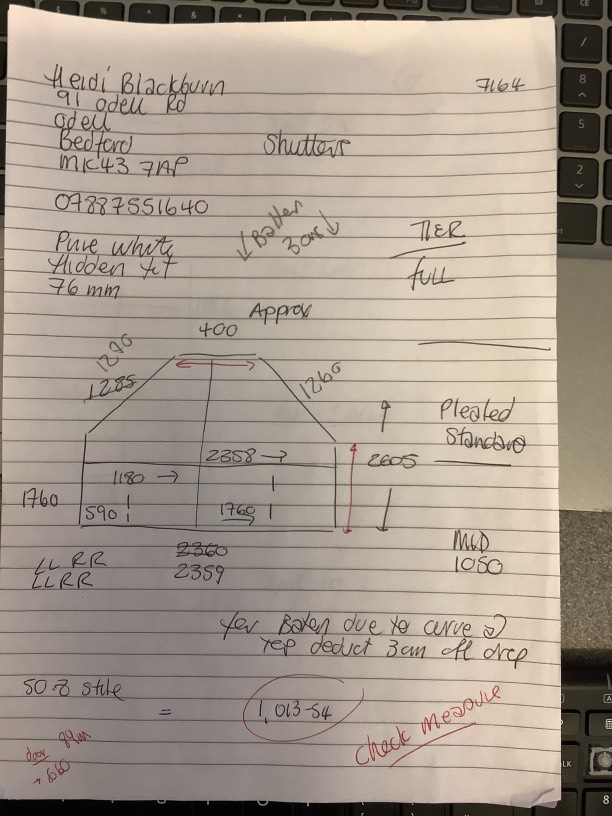 Heidi Blackburn
7164
91 Odell Rd
Odell
Bedford
Shutters
MK43 7AP
07887551640
↓ Batten ↓
3cm
TIER
Pure White
Hidden tilt
full
76 mm
Approx
400
1270
1285
1260
Pleated
Standard
2358 →
2605
1180 →
1760
590
1760
MID
1050
LL RR
2360
LLRR
2359
Yes Baten due to curve @
top deduct 3cm off drop
50.8 stile
= 1,013-54
check measure
door 89cm
→ 660